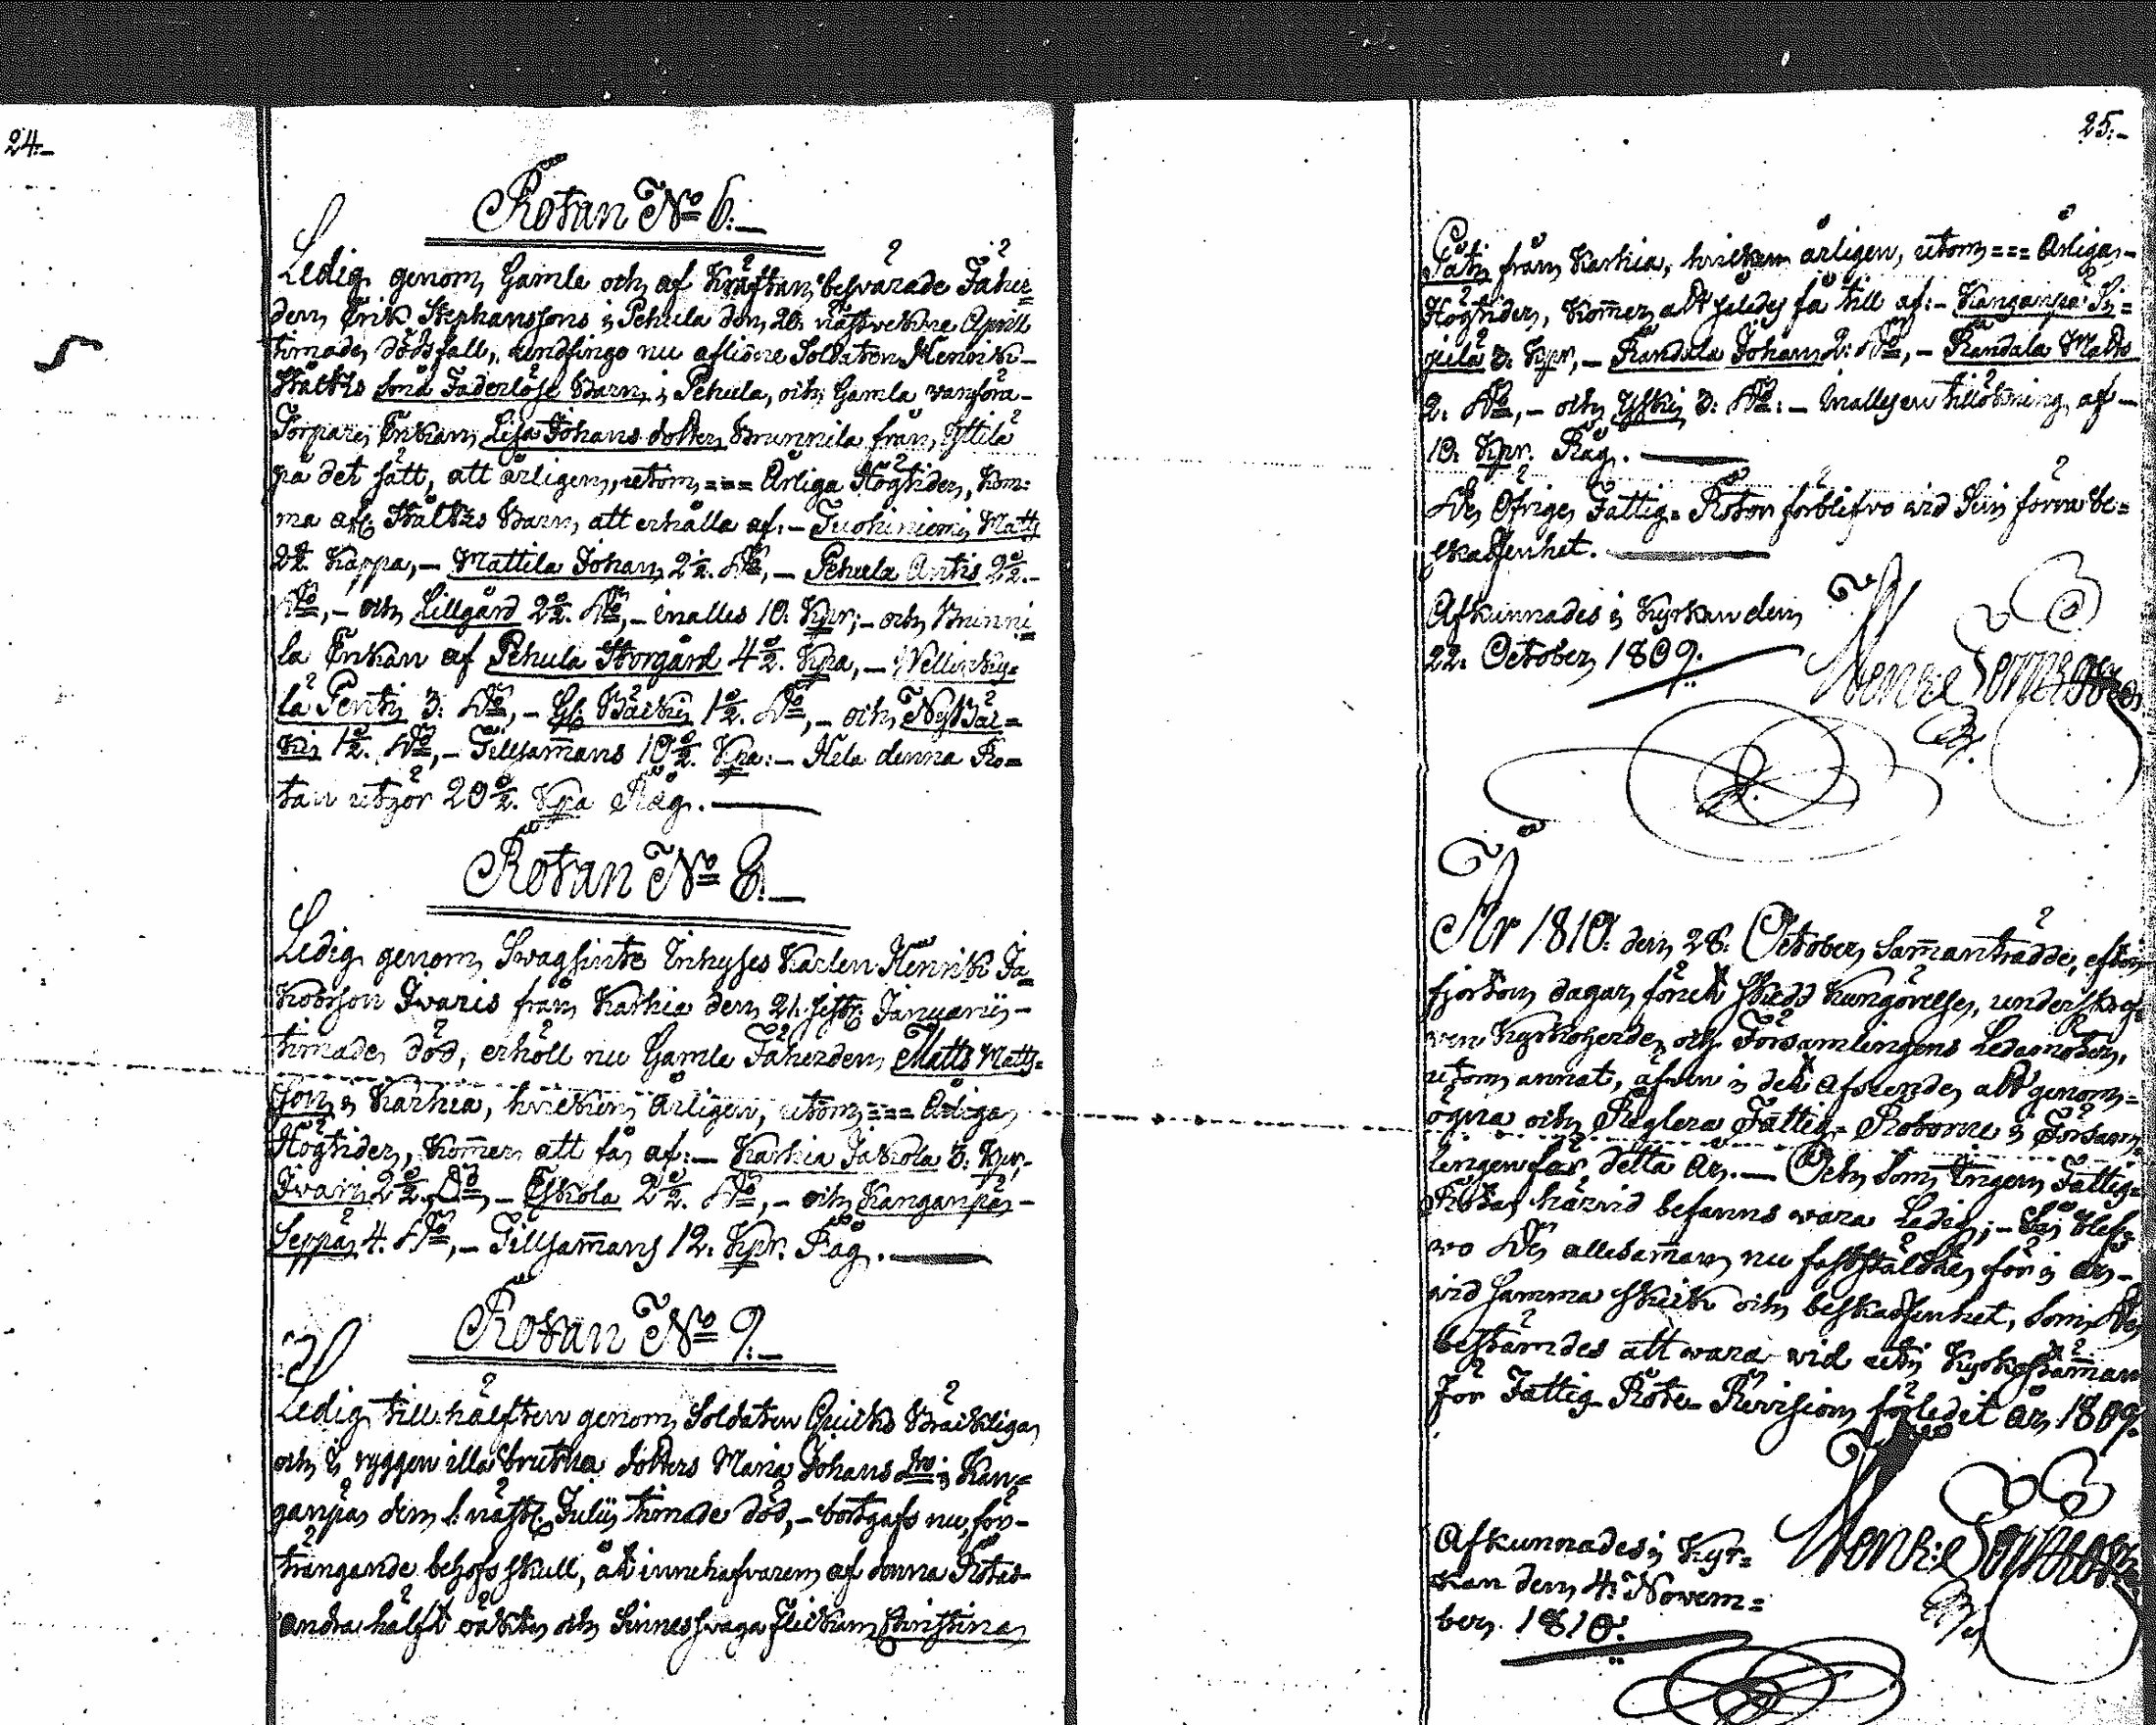 24.
Rotan No 6.
Ledig genom Gamle och af Kräftan besvarade Fäher=
den Erik Stephanssons i Pehula den 20. nästvekne Aprill
timade dödsfall, undfingo nu aflidne Soldaten Henrik
Hältks små Faderlöse Barn i Pehula, och Gamla vanföra
Torpare Enkan Lisa Johans dotter Brunnila från Yttilä
på det sätt, att årligen, utom === Årliga Högtider, kom=
ma afl. Hältks Barn att erhålla af:- Tuohiniemi Matts
2½. Kappa,- Mattila Johan 2½. Do,- Pehula Antis 2½.-
Do,- och Lillgård 2½. Do,- inalles 10. Kpr;- och Brunni=
la Enkan af Pehula Storgård 4½. Kpa,- Wellinky=
lä Pentti 3. Do,- Gl. Bäcki 1½. Do,- och Ny Bäc=
ki 1½. Do,- Tillsamans 10½. Kpa:- Hela denna Ro=
tan utgör 20½. Kpa Råg.
Rotan No 8.
Ledig genom Svagsinte Inhyses Karlen Henrik Ja=
kobsson Ivaris från Karhia den 21. sistl. Januarii
timade död, erhöll nu Gamle Fäherden Matts Matts=
son i Karhia, hvilken årligen, utom === Årliga
Högtider, komer att få af:- Karhia Jakola 3. Kpr,-
Ivari 2½. Do,- Eskola 2½. Do,- och Kanganpää
Seppä 4. Do,- Tillsamans 12. Kpr. Råg.
Rotan No 9.
Ledig till hälften genom Soldaten Quicks Bräckliga
och i ryggen illa brutna dotters Maria Johans Dr i Kan=
ganpää den 1. nästl. Julii timade död,- bortgafs nu, för
trängande behofs skull, åt innehafvaren af denna Rotas
andra hälft och Sinnessvaga flickan Christina
25.
från Karhia, hvilken årligen, utom === Årliga
Högtider, komer att således få till af:- Kanganpää
3. Kpr,- Randala Johan 2. Do,- Randala Matts
2. Do,- och Yski 3. Do:- inalles en tillökning af
10. Kpr. Råg.
De Öfrige Fattig-Rotor förblifvo vid sin förra be=
skaffenhet.
Afkunnades i Kyrkan den
22. October 1809.
År 1810. den 28. October Samanträdde, efter
fjorton dagar förut skedd kungörelse, underskrif=
ven Kyrkoherde och Församlingens Ledamöter,
utom annat, äfven i det Afseende, att genom=
ögna och Reglera Fattig-Rotorne i Försam=
lingen för detta År.- Och som Ingen Fattig=
Rota härvid befanns vara Ledig;- Så blef=
vo De allesaman nu fastställde för i år
vid samma skick och beskaffenhet, som De
bestämdes att vara vid Kyrkostäman
för Fattig-Rote-Revision förledit år 1809.
Afkunnades i Kyr=
kan den 4. Novem=
ber 1810.